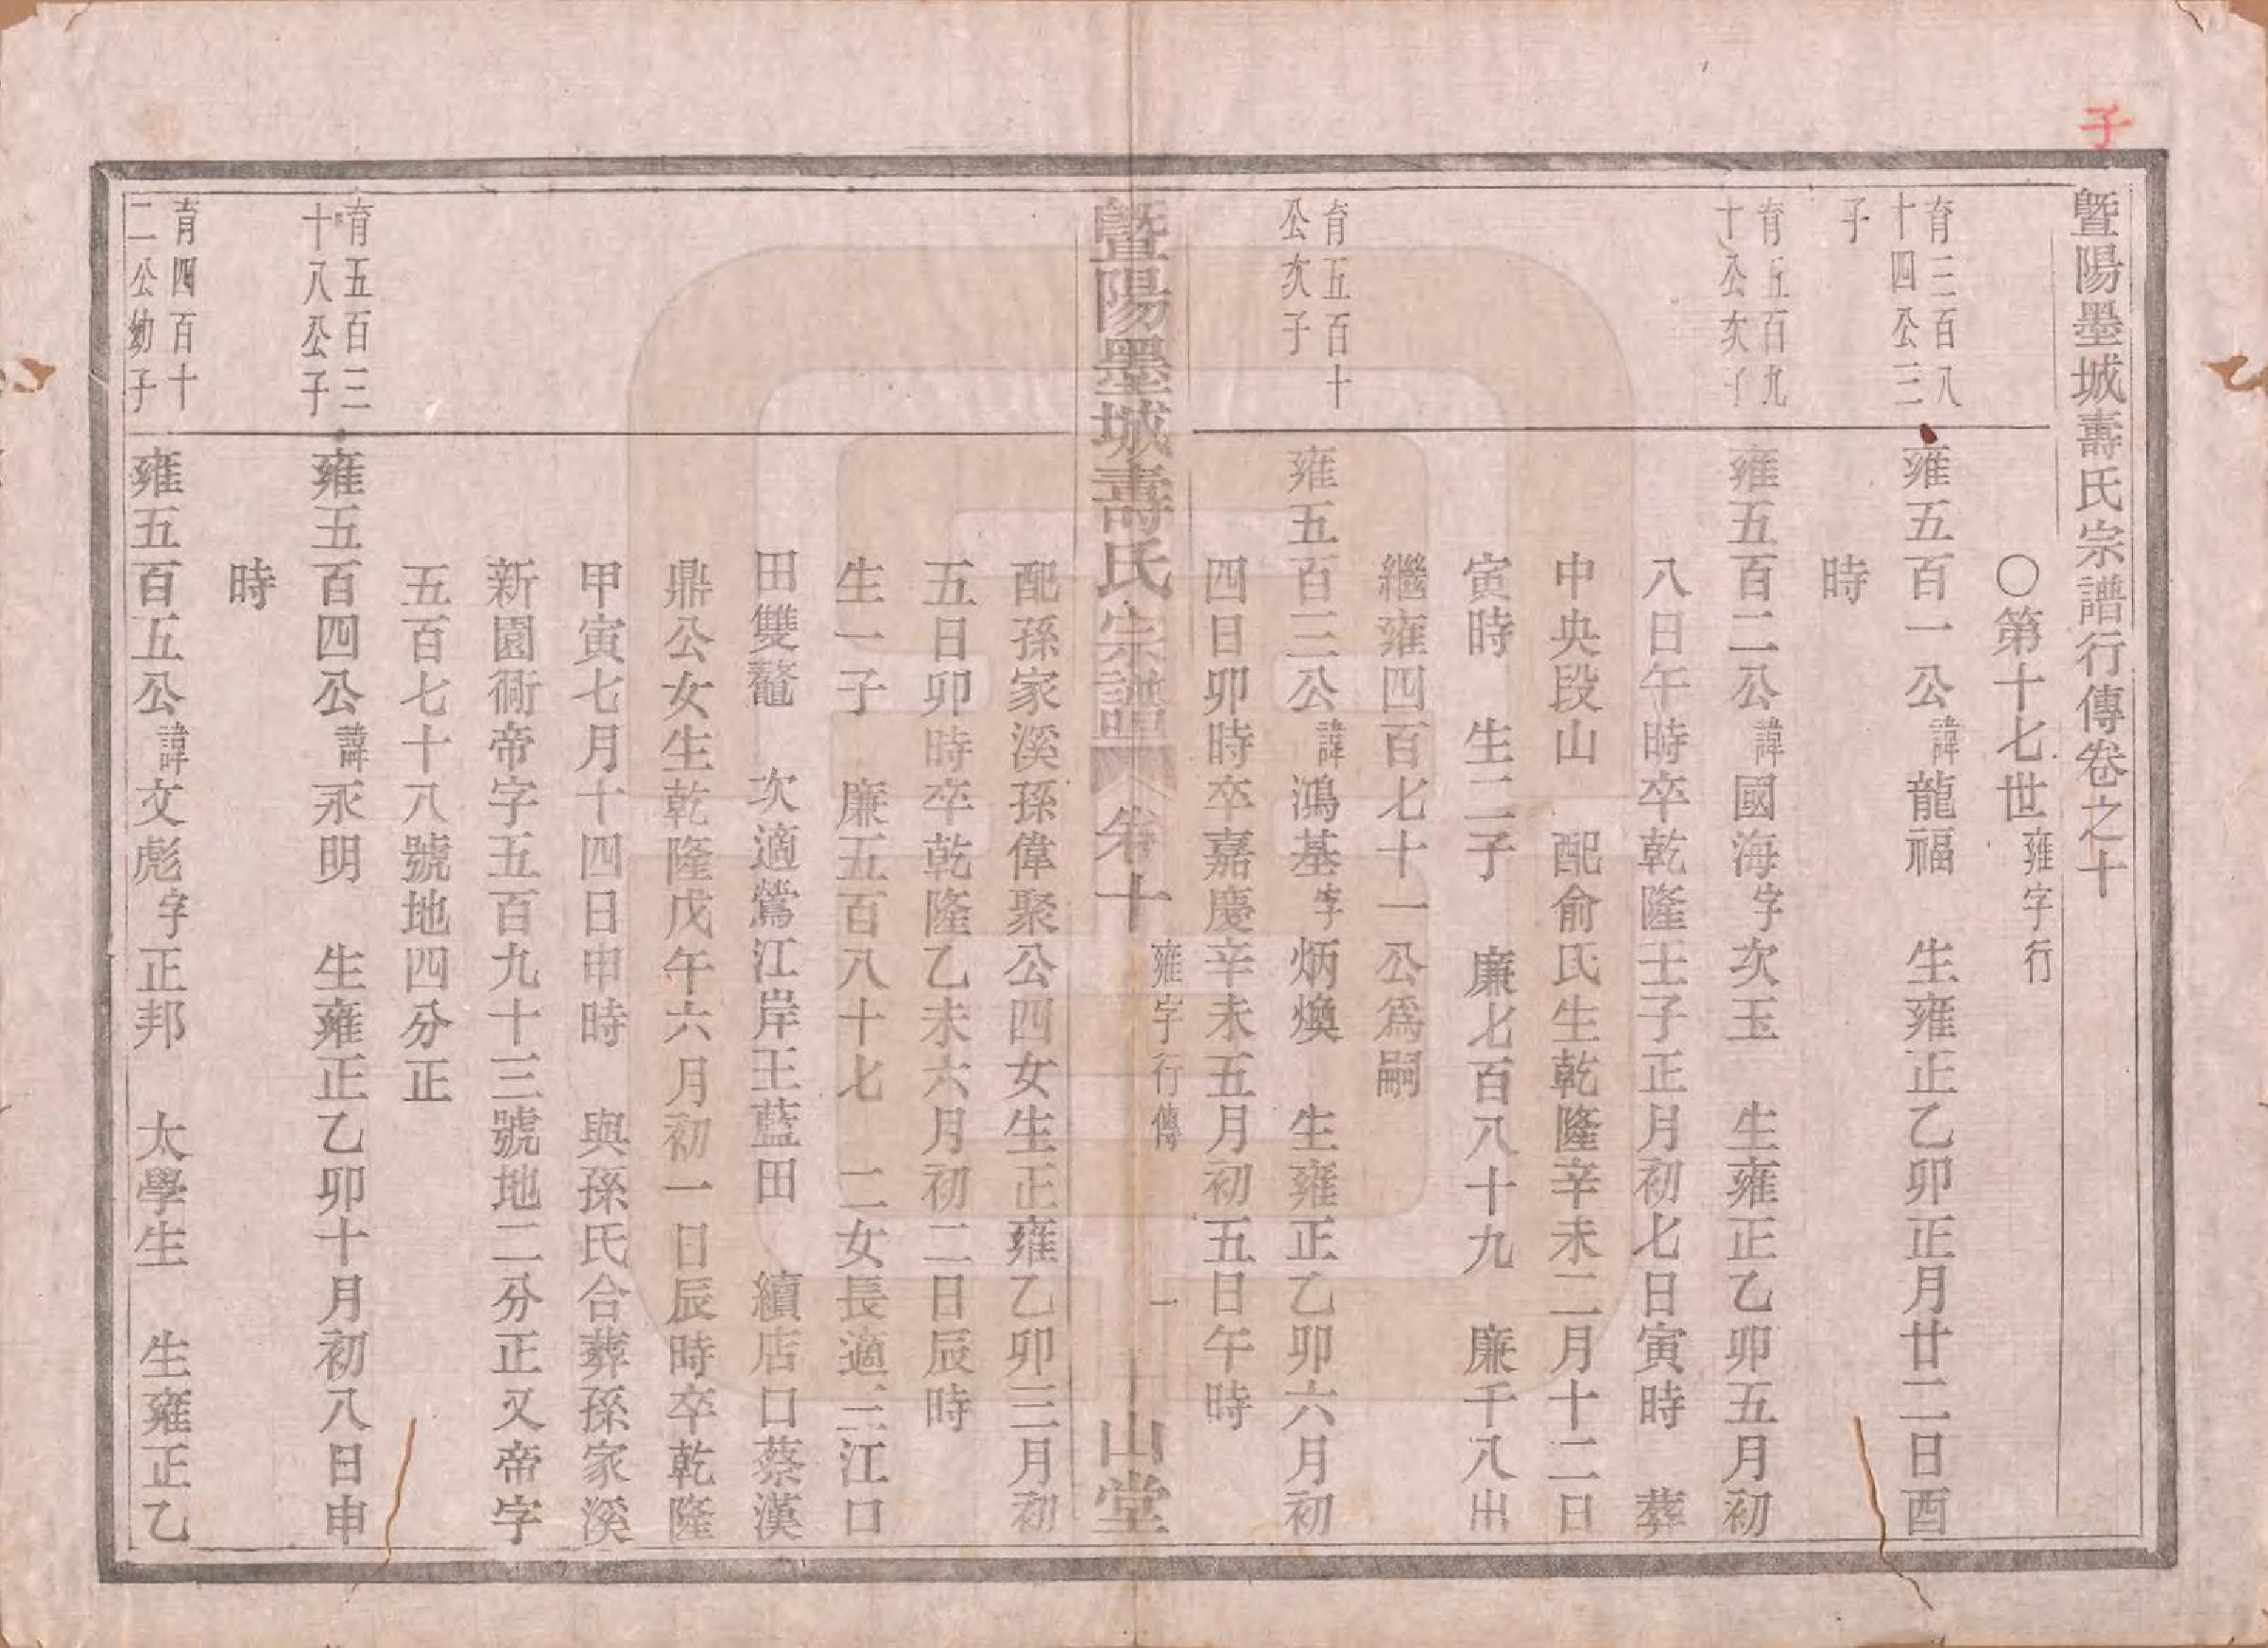 子
暨陽墨城壽氏宗譜行傳卷之十
〇第十七世雍字行
育三百八
十四公三
子
雍五百一公諱龍福　生雍正乙卯正月廿二日酉
時
育五百九
十公次子
雍五百二公諱國海字次玉　生雍正乙卯五月初
八日午時卒乾隆壬子正月初七日寅時　葬
中央段山　配俞氏生乾隆辛未二月十二日
寅時　生二子　廉七百八十九　廉千八出
繼雍四百七十一公爲嗣
育五百十
公次子
雍五百三公諱鴻基字炳煥　生雍正乙卯六月初
四日卯時卒嘉慶辛未五月初五日午時
暨陽墨城壽氏宗譜　卷十　雍字行傳　一　山堂
配孫家溪孫偉聚公四女生正雍乙卯三月初
五日卯時卒乾隆乙未六月初二日辰時
生一子　廉五百八十七　二女長適三江口
田雙鼇　次適鶯江岸王藍田　續店口蔡漢
鼎公女生乾隆戊午六月初一日辰時卒乾隆
甲寅七月十四日申時　與孫氏合葬孫家溪
新園衕帝字五百九十三號地二分正又帝字
五百七十八號地四分正
育五百三
十八公子
雍五百四公諱永明　生雍正乙卯十月初八日申
時
育四百十
二公幼子
雍五百五公諱文彪字正邦　太學生　生雍正乙